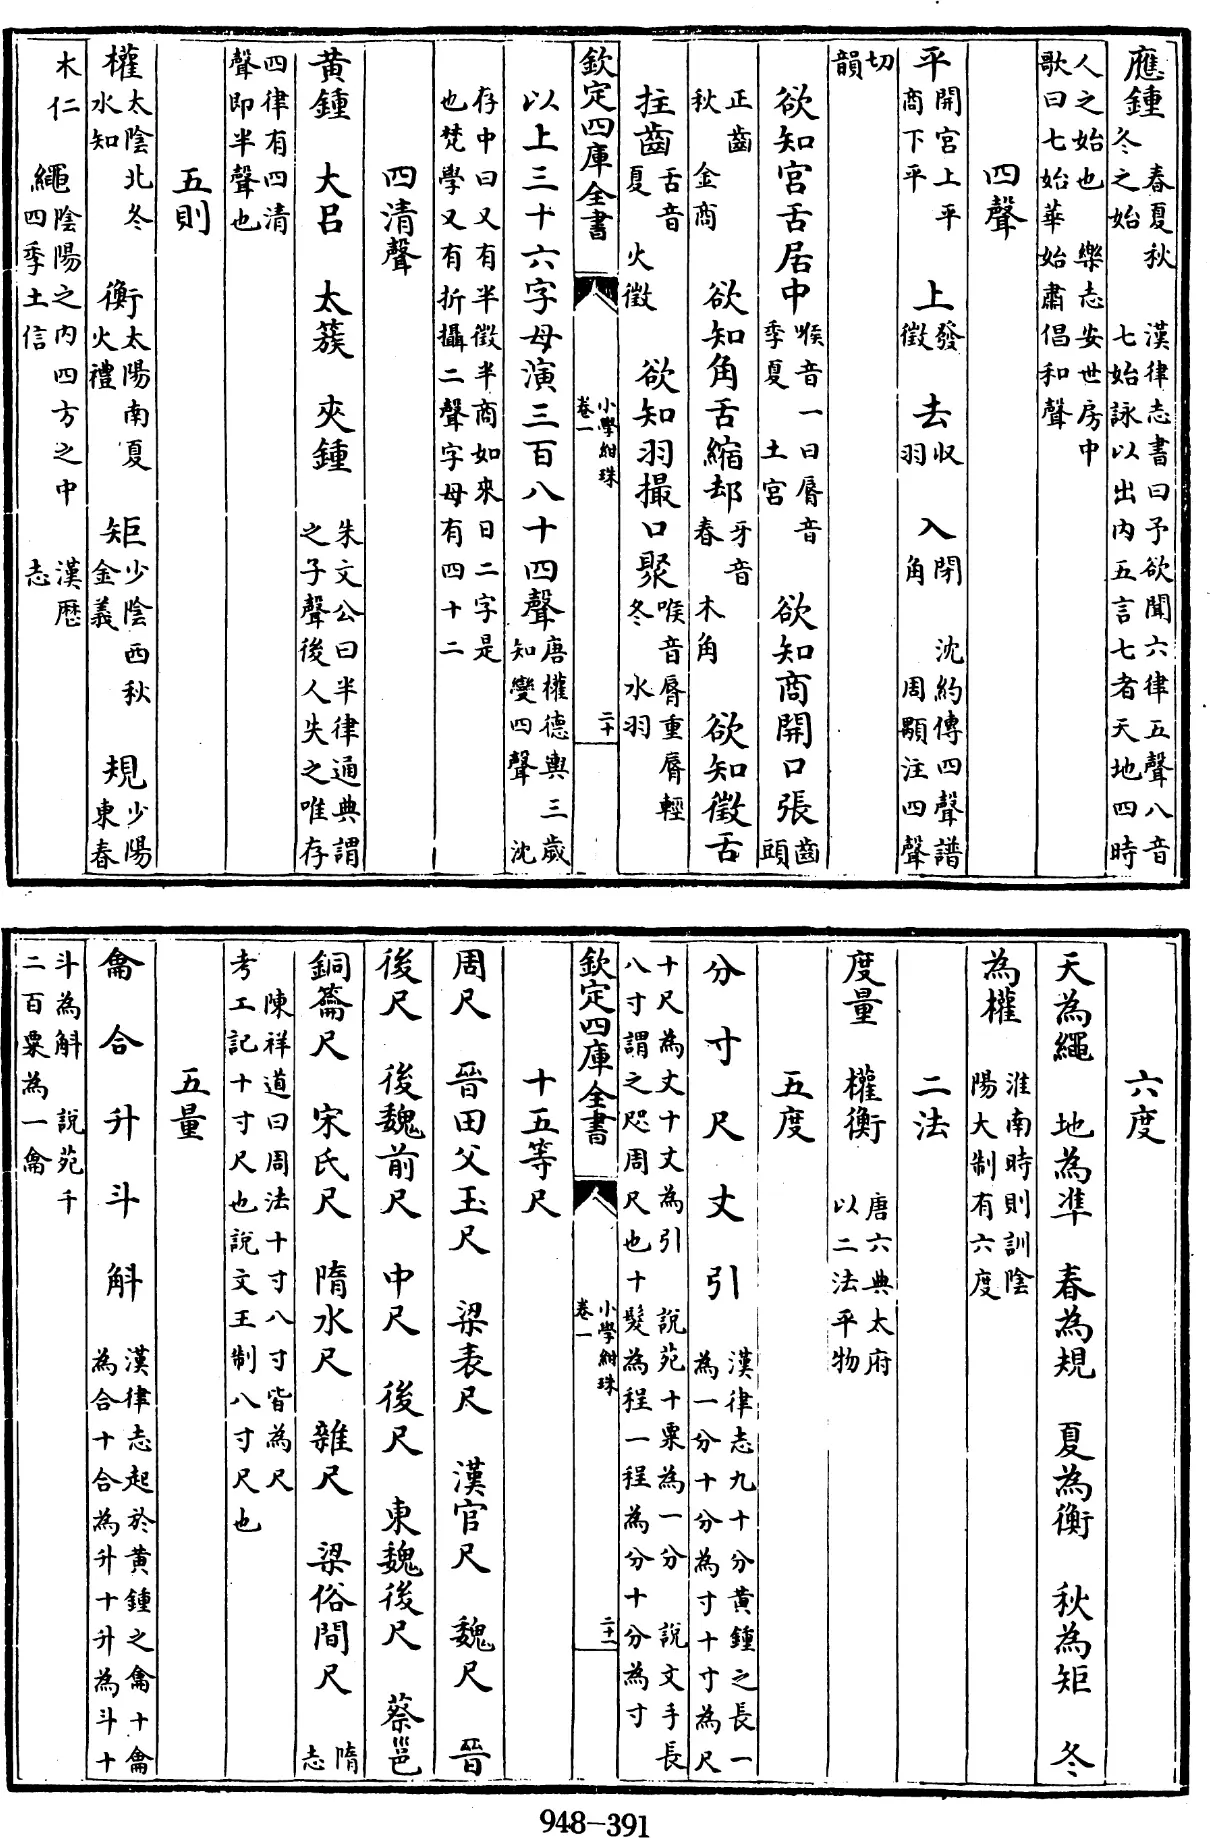 應鍾 春夏秋冬之始 漢律志書曰予欲聞六律五聲八音七始詠以出内五言七者天地四時
人之始也 樂志安世房中歌曰七始華始肅倡和聲
四聲
平 開宮上平商下平 上 發徵 去 收羽 入 閉角 沈約傳四聲譜周顒注四聲
切韻
欲知宮舌居中 喉音一曰脣音季夏 土宮 欲知商開口張 齒頭
正齒秋 金商 欲知角舌縮却 牙音春 木角 欲知徵舌
拄齒 舌音夏 火徵 欲知羽撮口聚 喉音脣重脣輕冬 水羽
欽定四庫全書 小學紺珠 卷一 二十
以上三十六字母演三百八十四聲 唐權德輿三歲知變四聲 沈
存中曰又有半徵半商如來日二字是也梵學又有折攝二聲字母有四十二
四清聲
黄鍾 大吕 太蔟 夾鍾 朱文公曰半律通典謂之子聲後人失之唯存
四律有四清聲即半聲也
五則
權 太陰北冬水知 衡 太陽南夏火禮 矩 少陰西秋金義 規 少陽東春
木仁 繩 陰陽之内四方之中四季土信 漢歷志
六度
天為繩 地為準 春為規 夏為衡 秋為矩 冬
為權 淮南時則訓陰陽大制有六度
二法
度量 權衡 唐六典太府以二法平物
五度
分 寸 尺 丈 引 漢律志九十分黄鍾之長一為一分十分為寸十寸為尺
十尺為丈十丈為引 說苑十粟為一分 說文手長八寸謂之咫周尺也十髮為程一程為分十分為寸
欽定四庫全書 小學紺珠 卷一 二十一
十五等尺
周尺 晉田父玉尺 梁表尺 漢官尺 魏尺 晉
後尺 後魏前尺 中尺 後尺 東魏後尺 蔡邕
銅籥尺 宋氏尺 隋水尺 雜尺 梁俗間尺 隋志
陳祥道曰周法十寸八寸皆為尺考工記十寸尺也說文王制八寸尺也
五量
龠 合 升 斗 斛 漢律志起於黄鍾之龠十龠為合十合為升十升為斗十
斗為斛 說苑千二百粟為一龠
948-391